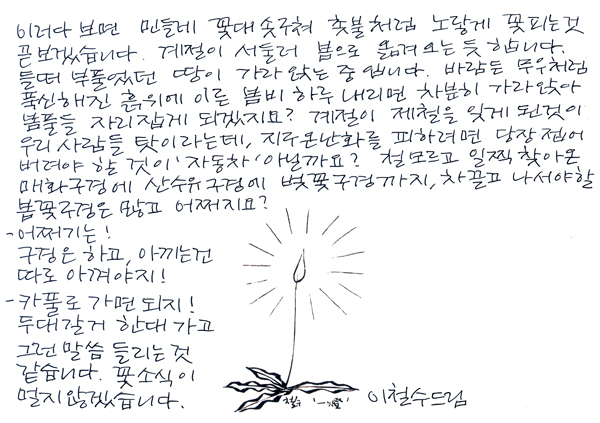 이러다 보면 민들레 꽃대 솟구쳐 촛불처럼 노랗게 꽃피는것
곧 보겠습니다. 계절이 서둘러 봄으로 옮겨 오는 듯 합니다.
들떠 부풀었던 땅이 가라앉는 중입니다. 바람든 무우처럼
푹신해진 흙위에 이른 봄비 하루 내리면 차분히 가라앉아
봄풀들 자리잡게 되겠지요? 계절이 제철을 잊게 된것이
우리 사람들 탓이라는데, 지구온난화를 피하려면 당장 집어
버려야 할 것이 '자동차' 아닐까요? 철모르고 일찍 찾아온
매화구경에 산수유구경에 벚꽃구경까지, 차끌고 나서야할
봄꽃구경은 많고 어쩌지요?
-어쩌기는!
구경은 하고, 아끼는건
따로 아껴야지!
-카풀로 가면 되지!
두대갈거 한대 가고
그런 말씀 들리는 것
같습니다. 꽃소식이
멀지않겠습니다.
이철수드림
철수